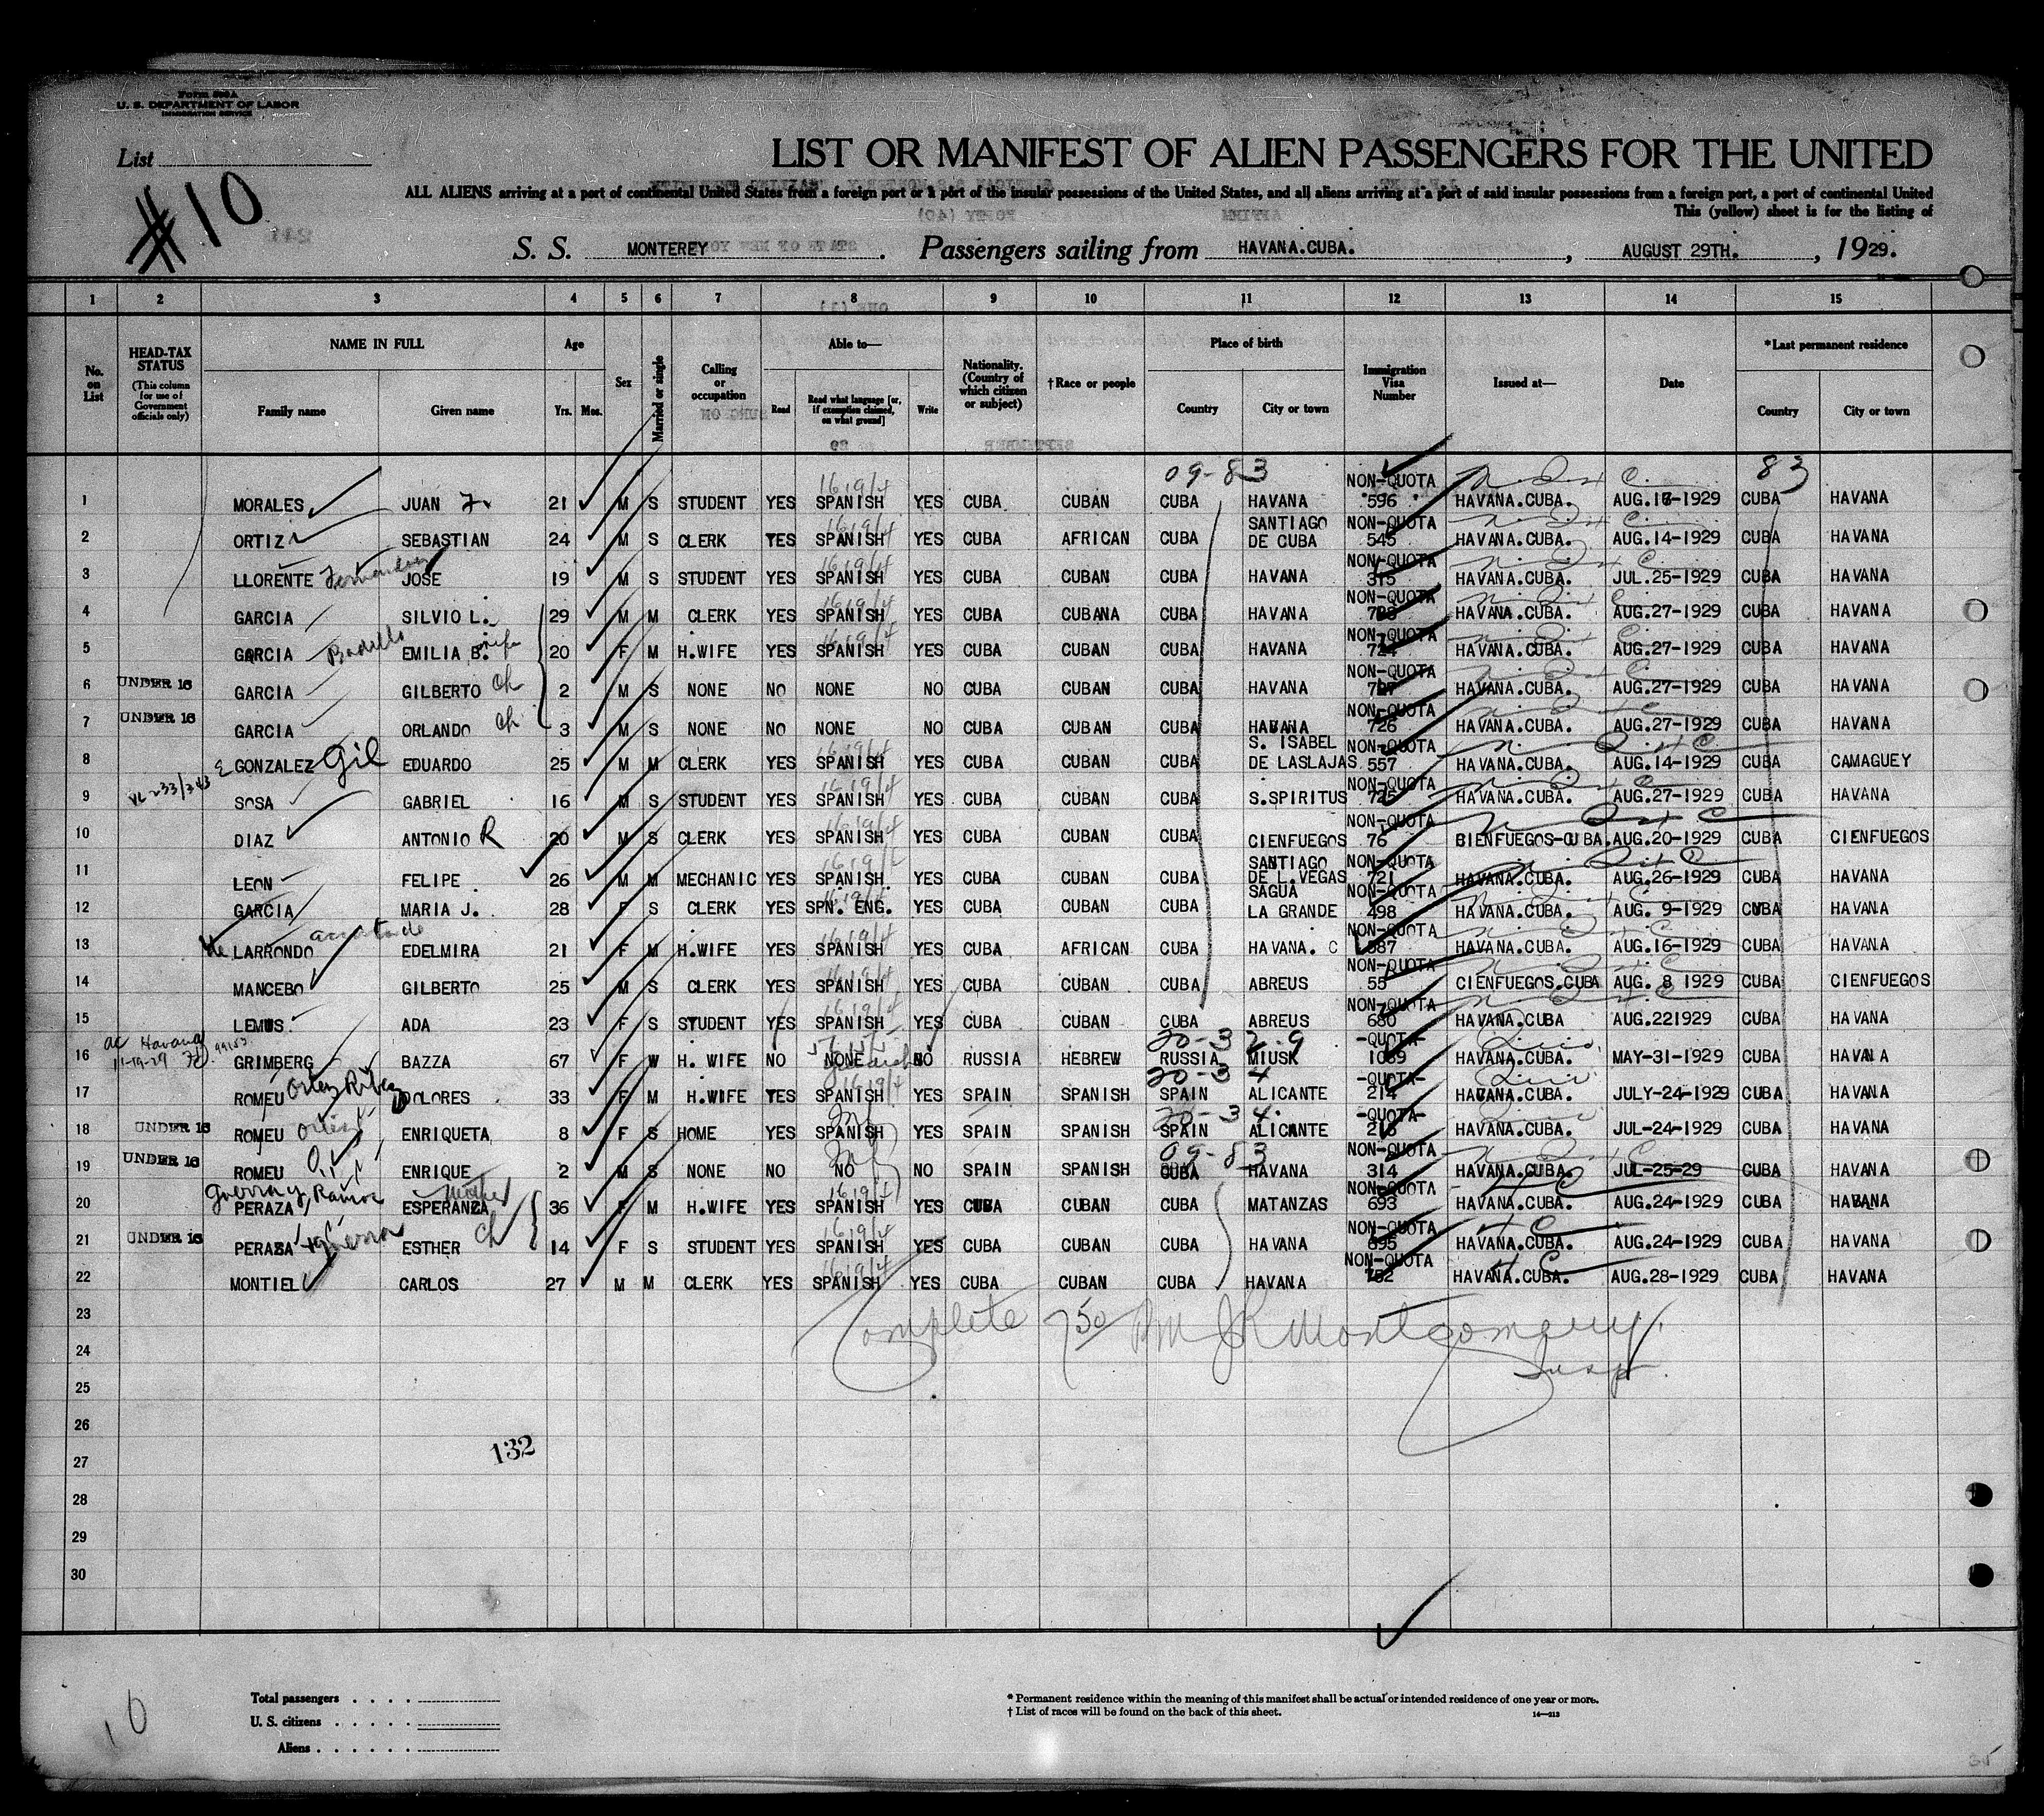 Form 500A
U. S. DEPARTMENT OF LABOR
IMMIGRATION SERVICE
List
#10
LIST OR MANIFEST OF ALIEN PASSENGERS FOR THE UNITED
ALL ALIENS arriving at a port of continental United States from a foreign port or a port of the insular possessions of the United States, and all aliens arriving at a port of said insular possessions from a foreign port, a port of continental United
This (yellow) sheet is for the listing of
S. S. MONTEREY. Passengers sailing from HAVANA.CUBA. , AUGUST 29TH. , 1929.
1 2 3 4 5 6 7 8 9 10 11 12 13 14 15
No. on List HEAD-TAX STATUS (This column for use of Government officials only) NAME IN FULL Family name Given name Age Yrs. Mos. Sex Married or single Calling or occupation Able to— Read Read what language [or, if exemption claimed, on what ground] Write Nationality. (Country of which citizen or subject) †Race or people Place of birth Country City or town Immigration Visa Number Issued at— Date *Last permanent residence Country City or town
09-83 83
1 MORALES JUAN 21 M S STUDENT YES SPANISH YES CUBA CUBAN CUBA HAVANA NON-QUOTA 596 HAVANA.CUBA. AUG.16-1929 CUBA HAVANA
2 ORTIZ SEBASTIAN 24 M S CLERK YES SPANISH YES CUBA AFRICAN CUBA SANTIAGO DE CUBA NON-QUOTA 545 HAVANA.CUBA. AUG.14-1929 CUBA HAVANA
3 LLORENTE JOSE 19 M S STUDENT YES SPANISH YES CUBA CUBAN CUBA HAVANA NON-QUOTA 315 HAVANA.CUBA. JUL.25-1929 CUBA HAVANA
4 GARCIA SILVIO L. 29 M M CLERK YES SPANISH YES CUBA CUBANA CUBA HAVANA NON-QUOTA HAVANA.CUBA. AUG.27-1929 CUBA HAVANA
5 GARCIA EMILIA B. wife 20 F M H.WIFE YES SPANISH YES CUBA CUBAN CUBA HAVANA NON-QUOTA 724 HAVANA.CUBA. AUG.27-1929 CUBA HAVANA
6 UNDER 16 GARCIA GILBERTO ch 2 M S NONE NO NONE NO CUBA CUBAN CUBA HAVANA NON-QUOTA 727 HAVANA.CUBA. AUG.27-1929 CUBA HAVANA
7 UNDER 16 GARCIA ORLANDO ch 3 M S NONE NO NONE NO CUBA CUBAN CUBA HAVANA NON-QUOTA 726 HAVANA.CUBA. AUG.27-1929 CUBA HAVANA
8 GONZALEZ Gil EDUARDO 25 M M CLERK YES SPANISH YES CUBA CUBAN CUBA S. ISABEL DE LASLAJAS NON-QUOTA 557 HAVANA.CUBA. AUG.14-1929 CUBA CAMAGUEY
9 SOSA GABRIEL 16 M S STUDENT YES SPANISH YES CUBA CUBAN CUBA S.SPIRITUS NON-QUOTA 725 HAVANA.CUBA. AUG.27-1929 CUBA HAVANA
10 DIAZ ANTONIO R 20 M S CLERK YES SPANISH YES CUBA CUBAN CUBA CIENFUEGOS NON-QUOTA 76 BIENFUEGOS-CUBA. AUG.20-1929 CUBA CIENFUEGOS
11 LEON FELIPE 26 M M MECHANIC YES SPANISH YES CUBA CUBAN CUBA SANTIAGO DE L.VEGAS NON-QUOTA 721 HAVANA.CUBA. AUG.26-1929 CUBA HAVANA
12 GARCIA MARIA J. 28 F S CLERK YES SPN. ENG. YES CUBA CUBAN CUBA SAGUA LA GRANDE NON-QUOTA 498 HAVANA.CUBA. AUG. 9-1929 CUBA HAVANA
13 LARRONDO EDELMIRA 21 F M H.WIFE YES SPANISH YES CUBA AFRICAN CUBA HAVANA. C NON-QUOTA 587 HAVANA.CUBA. AUG.16-1929 CUBA HAVANA
14 MANCEBO GILBERTO 25 M S CLERK YES SPANISH YES CUBA CUBAN CUBA ABREUS NON-QUOTA 55 CIENFUEGOS.CUBA AUG. 8 1929 CUBA CIENFUEGOS
15 LEMUS ADA 23 F S STUDENT YES SPANISH YES CUBA CUBAN CUBA ABREUS NON-QUOTA 680 HAVANA.CUBA AUG.221929 CUBA HAVANA
20-3 2-9
16 GRIMBERG BAZZA 67 F W H. WIFE NO NONE NO RUSSIA HEBREW RUSSIA MIUSK -QUOTA- 1089 HAVANA.CUBA. MAY-31-1929 CUBA HAVANA
20-3 4
17 ROMEU DOLORES 33 F M H.WIFE YES SPANISH YES SPAIN SPANISH SPAIN ALICANTE -QUOTA- 214 HAVANA.CUBA. JULY-24-1929 CUBA HAVANA
20-3 4
18 UNDER 16 ROMEU ENRIQUETA 8 F S HOME YES SPANISH YES SPAIN SPANISH SPAIN ALICANTE -QUOTA- HAVANA.CUBA. JUL-24-1929 CUBA HAVANA
09-83
19 UNDER 16 ROMEU ENRIQUE 2 M S NONE NO NO NO SPAIN SPANISH CUBA HAVANA NON-QUOTA 314 HAVANA.CUBA. JUL-25-29 CUBA HAVANA
20 PERAZA ESPERANZA mother 36 F M H.WIFE YES SPANISH YES CUBA CUBAN CUBA MATANZAS NON-QUOTA 693 HAVANA.CUBA. AUG.24-1929 CUBA HAVANA
21 UNDER 16 PERAZA ESTHER ch 14 F S STUDENT YES SPANISH YES CUBA CUBAN CUBA HAVANA NON-QUOTA 695 HAVANA.CUBA. AUG.24-1929 CUBA HAVANA
22 MONTIEL CARLOS 27 M M CLERK YES SPANISH YES CUBA CUBAN CUBA HAVANA NON-QUOTA 752 HAVANA.CUBA. AUG.28-1929 CUBA HAVANA
23
Complete 750 PM JR Montgomery
24
Insp.
25
26
27
132
28
29
30
10
Total passengers
U. S. citizens
Aliens
* Permanent residence within the meaning of this manifest shall be actual or intended residence of one year or more.
† List of races will be found on the back of this sheet.
14—213